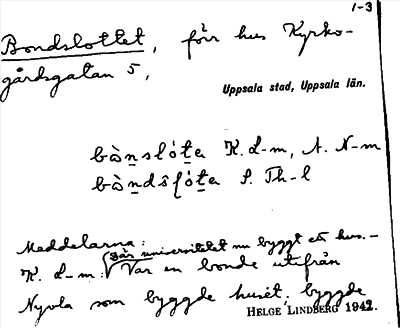 1-3
Bondslottet, förr hus Kyrko-
gårdsgatan 5,
Uppsala stad, Uppsala län.
bòn̲slót̲e K. L-m, A. N-m
bòn̲dʃĺót̲e S. Th-l
Meddelarna:
där universitetet nu byggt ett hus. -
K. L-m: Var en bonde utifrån
Nyvla som byggde huset, byggde
HELGE LINDBERG 1942.